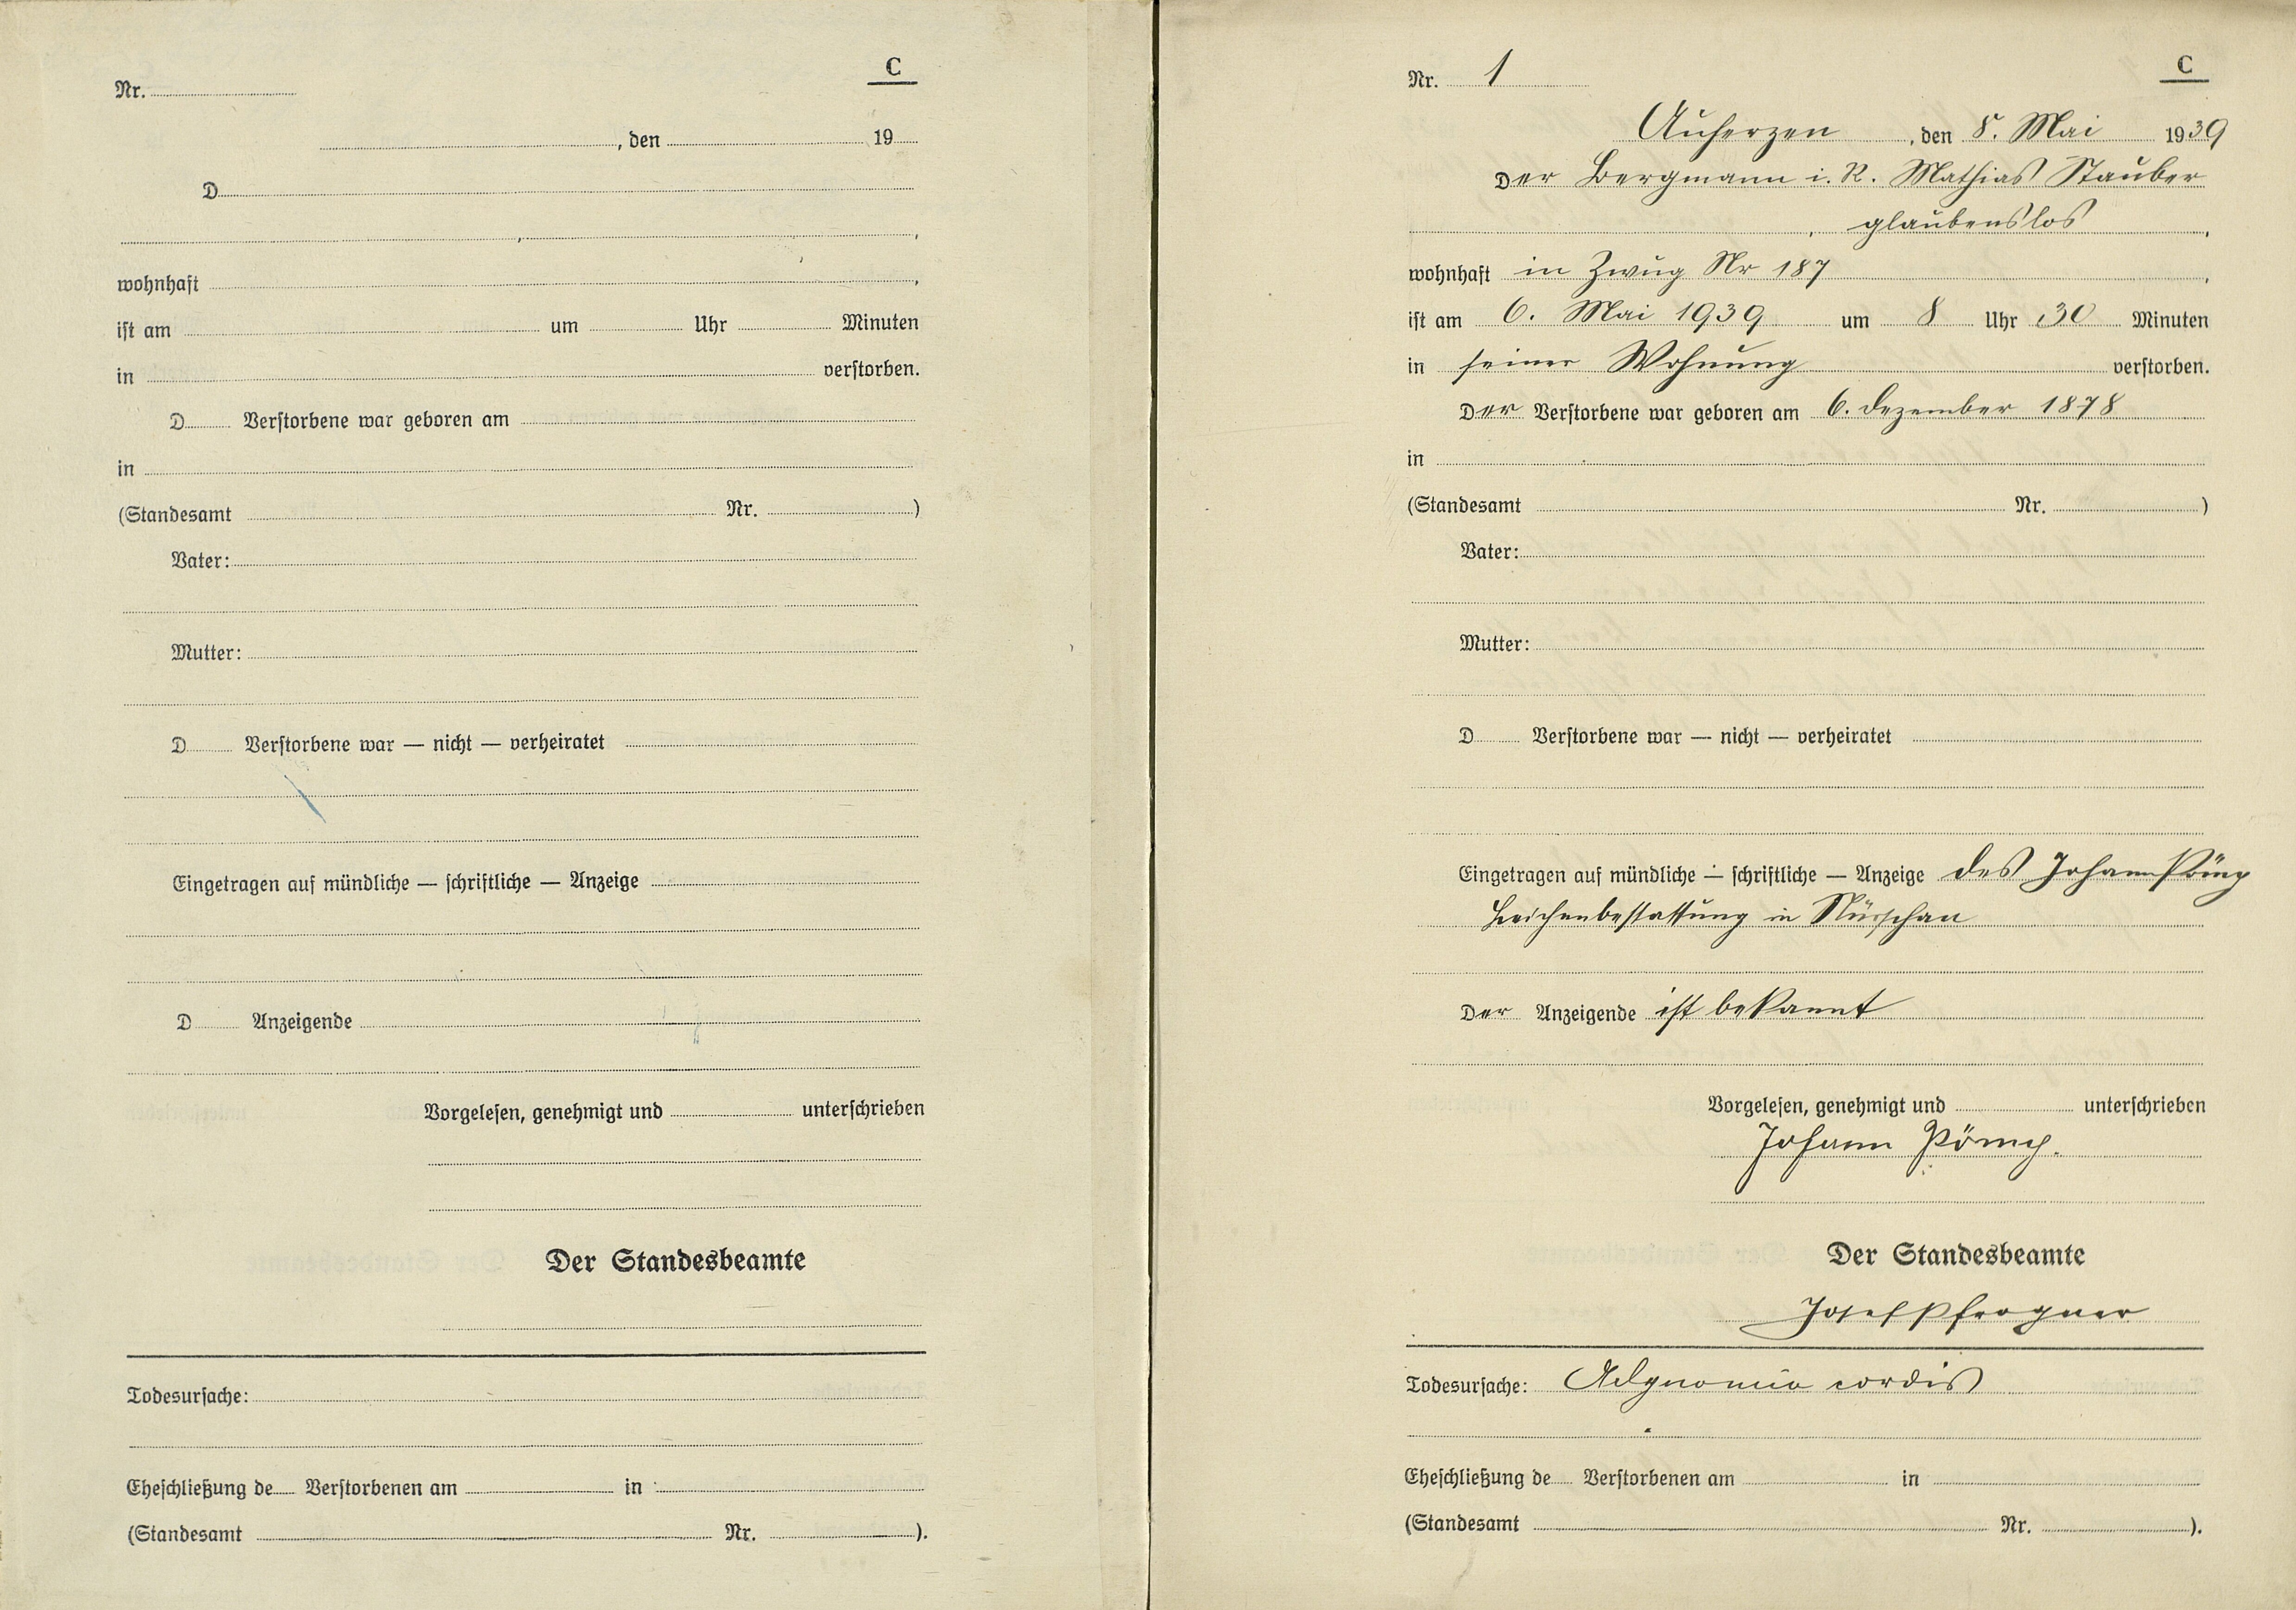 Nr.
C
, den 19
D
wohnhaft
ist am um Uhr Minuten
in verstorben.
D Verstorbene war geboren am
in
(Standesamt Nr. )
Vater:
Mutter:
D Verstorbene war — nicht — verheiratet
Eingetragen auf mündliche — schriftliche — Anzeige
D Anzeigende
Vorgelesen, genehmigt und unterschrieben
Der Standesbeamte
Todesursache:
Eheschließung de Verstorbenen am in
(Standesamt Nr. ).
Nr. 1
C
Auherzen, den 8. Mai 1939
Der Bergmann i. R. Mathias Stauber
, glaubenslos,
wohnhaft in Zwug Nr 187,
ist am 6. Mai 1939 um 8 Uhr 30 Minuten
in seiner Wohnung verstorben.
Der Verstorbene war geboren am 6. Dezember 1878
in
(Standesamt Nr. )
Vater:
Mutter:
D Verstorbene war — nicht — verheiratet
Eingetragen auf mündliche — schriftliche — Anzeige des Johann
Leichenbestattung in Nürschan
Der Anzeigende ist bekannt
Vorgelesen, genehmigt und unterschrieben
Johann
Der Standesbeamte
Josef Pfrogner
Todesursache: cordis
Eheschließung de Verstorbenen am in
(Standesamt Nr. ).